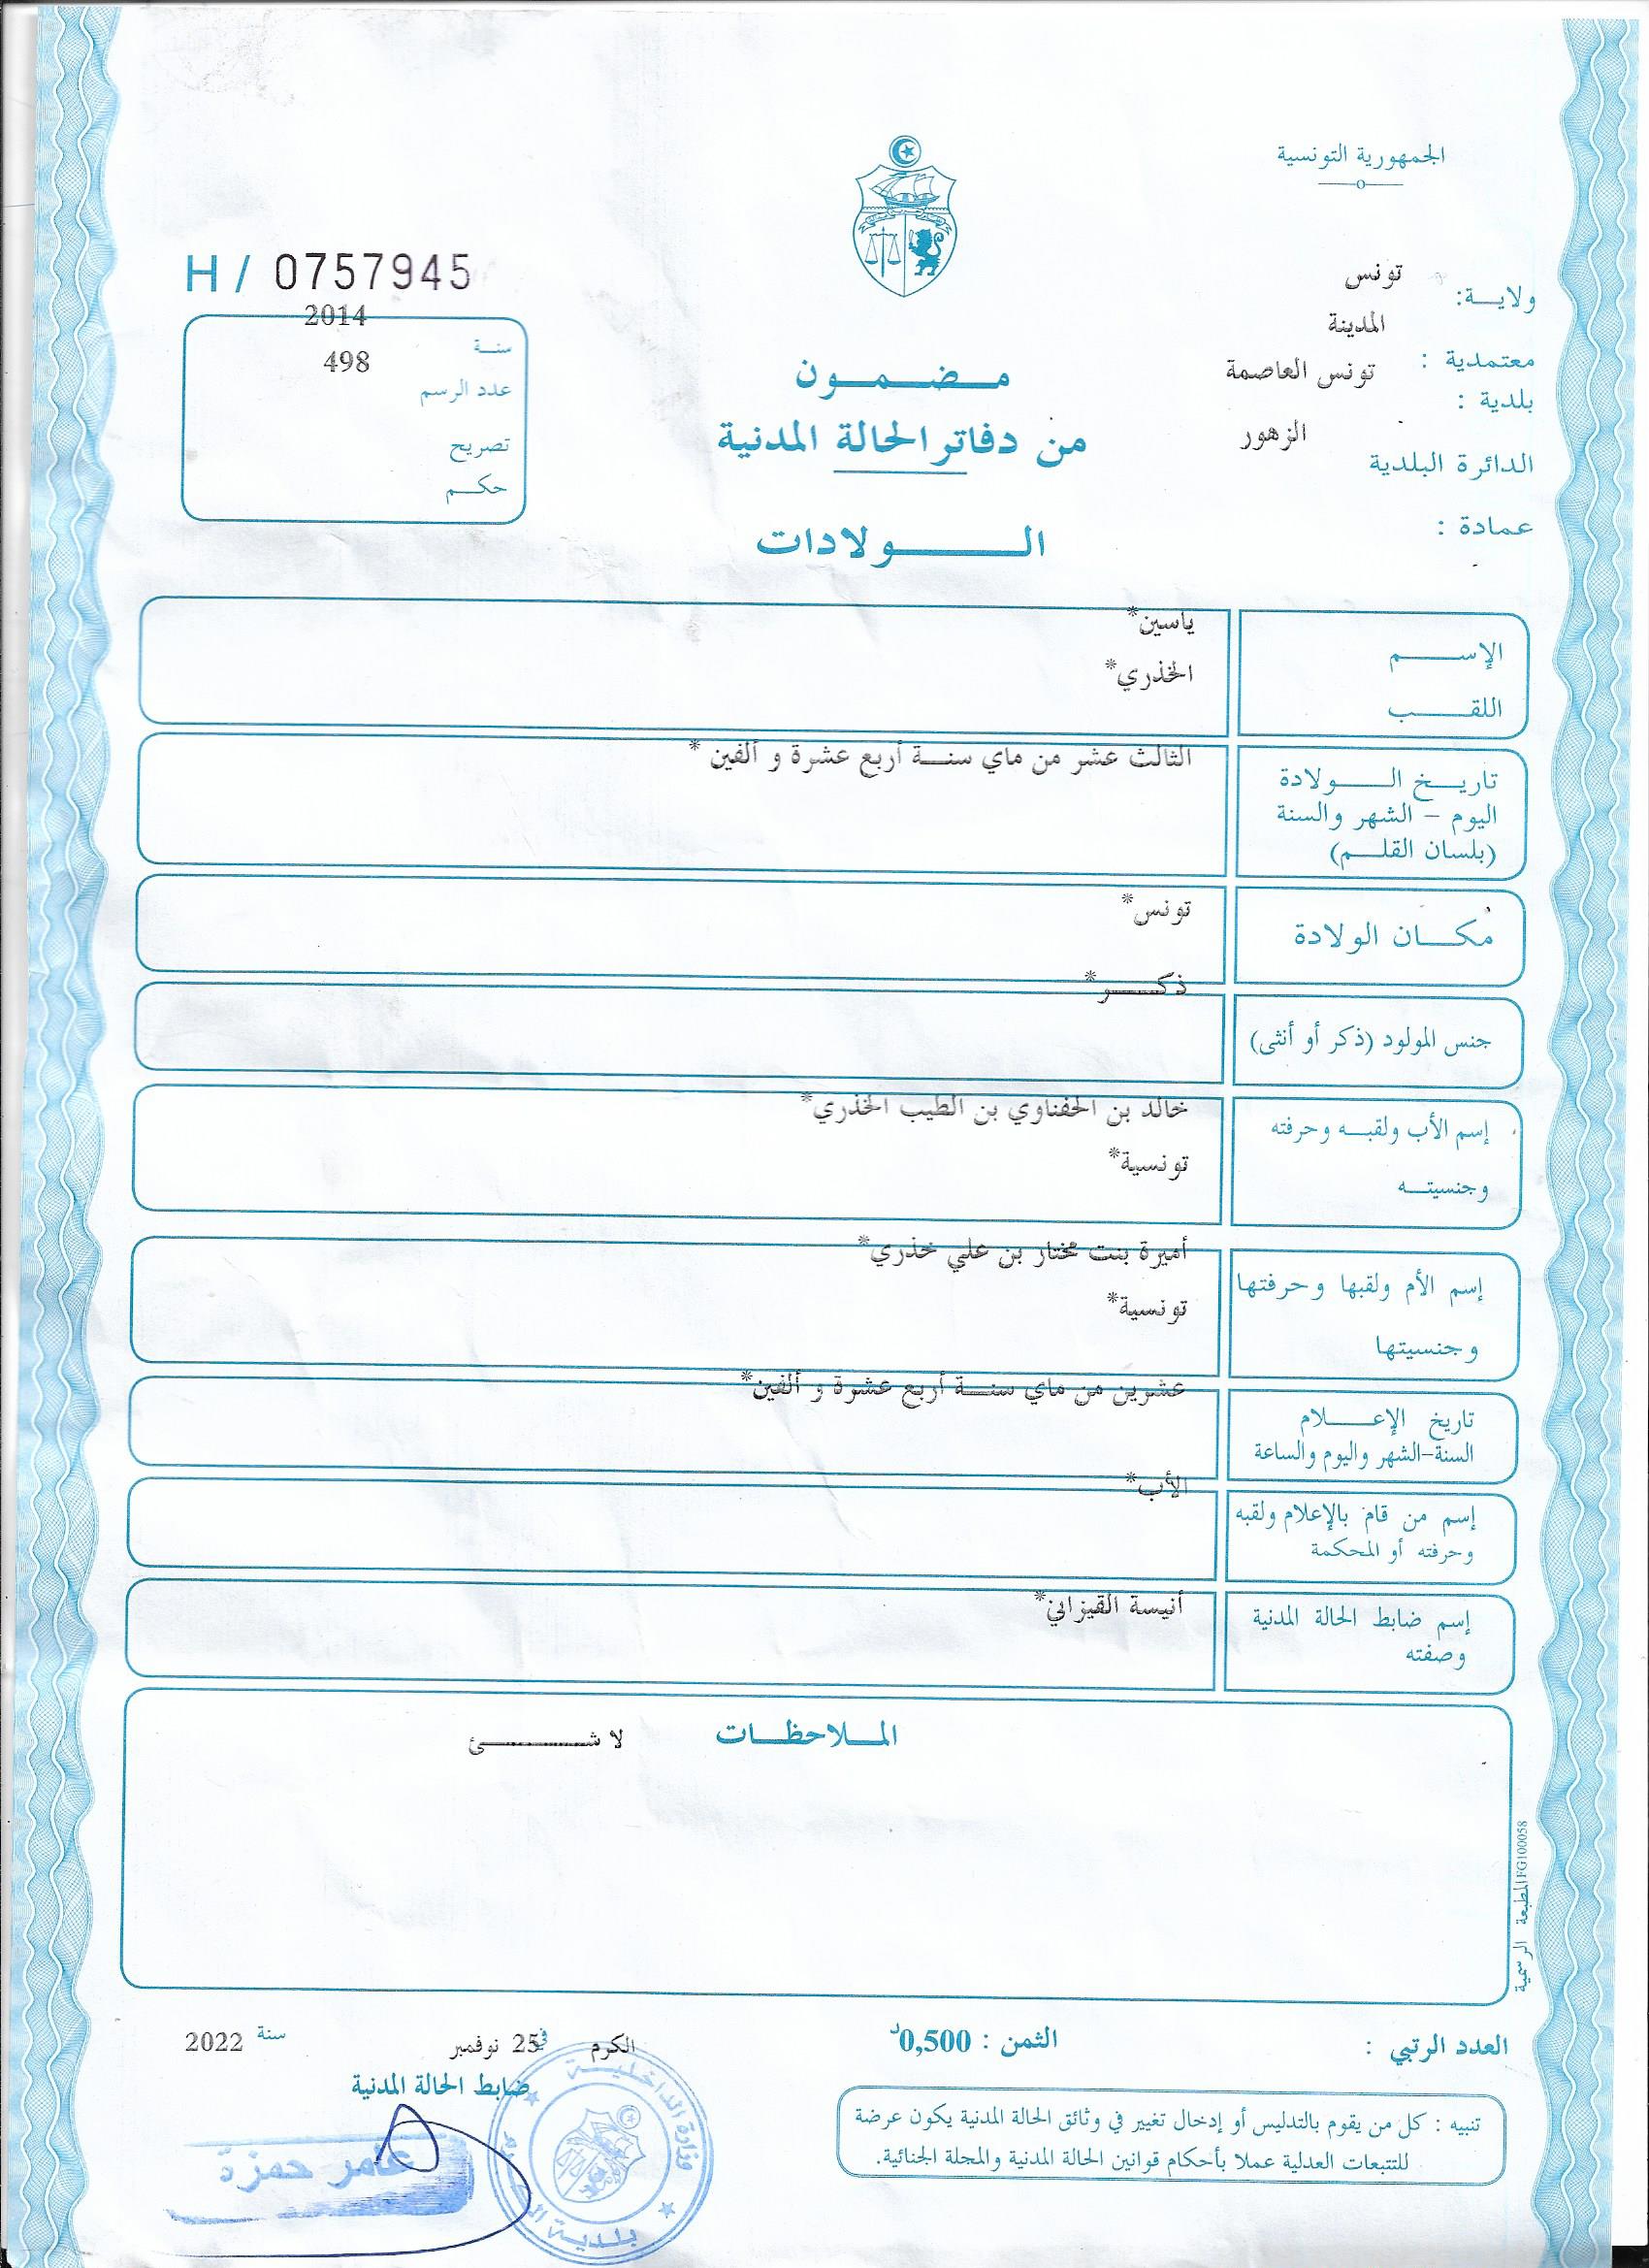 الجمهورية التونسية
ولاية: تونس
معتمدية : المدينة
بلدية : تونس العاصمة
الدائرة البلدية الزهور
عمادة :
H / 0757945
سنة 2014
عدد الرسم 498
تصريح
حكم
مضمون
من دفاتر الحالة المدنية
الولادات
الإسم ياسين*
اللقب الخذري*
تاريخ الولادة الثالث عشر من ماي سنة أربع عشرة و ألفين *
اليوم - الشهر والسنة
(بلسان القلم)
مكان الولادة تونس*
جنس المولود (ذكر أو أنثى) ذكر*
إسم الأب ولقبه وحرفته خالد بن الحفناوي بن الطيب الخذري*
وجنسيته تونسية*
إسم الأم ولقبها وحرفتها أميرة بنت مختار بن علي خذري*
وجنسيتها تونسية*
تاريخ الإعلام عشرين من ماي سنة أربع عشرة و ألفين*
السنة-الشهر واليوم والساعة
إسم من قام بالإعلام ولقبه الأب*
وحرفته أو المحكمة
إسم ضابط الحالة المدنية أنيسة القيزاني*
وصفته
الملاحظات لا شئ
المطبعة الرسمية FG100058
العدد الرتبي :
الثمن : 0,500د
الكرم في 25 نوفمبر سنة 2022
ضابط الحالة المدنية
عامر حمزة
وزارة الداخلية
بلدية الكرم
تنبيه : كل من يقوم بالتدليس أو إدخال تغيير في وثائق الحالة المدنية يكون عرضة
للتتبعات العدلية عملا بأحكام قوانين الحالة المدنية والمجلة الجنائية.